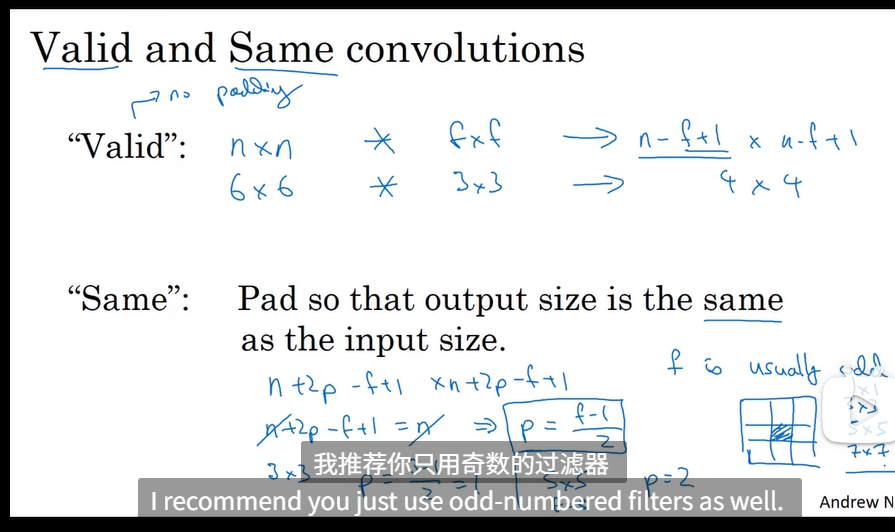 Valid and Same convolutions
→ no padding
“Valid”: n×n * f×f → n-f+1 × n-f+1
6×6 * 3×3 → 4×4
“Same”: Pad so that output size is the same
as the input size.
f is usually odd
n+2p-f+1 ×n+2p-f+1
1×1
n+2p-f+1 = n ⇒ p = f-1/2
3×3
5×5
7×7
3×3 p = 3-1/2 = 1 5×5 p=2
我推荐你只用奇数的过滤器
I recommend you just use odd-numbered filters as well.
Andrew N